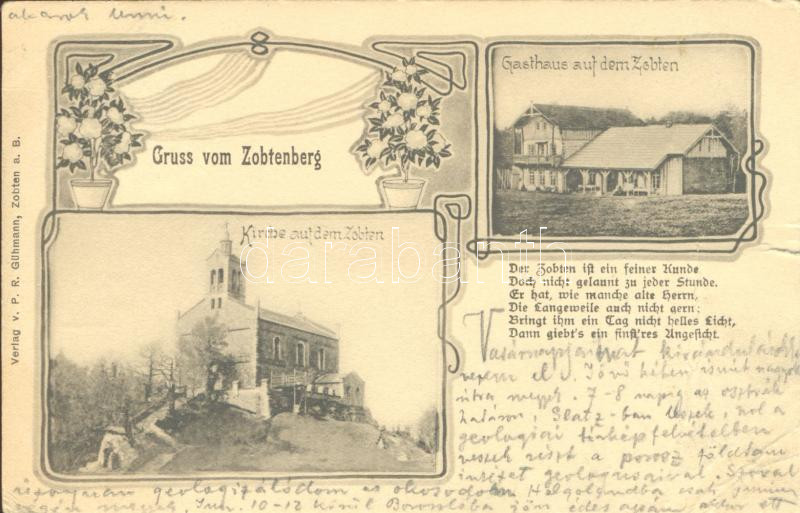 akarok
Gruss vom Zobtenberg
Gasthaus auf dem Zobten
Kirche auf dem Zobten
darabanth.com
Verlag v. P. R. Gühmann, Zobten a. B.
Der Zobten ist ein feiner Kunde
Doch nicht gelaunt zu jeder Stunde.
Er hat, wie manche alte Herrn,
Die Langeweile auch nicht gern;
Bringt ihm ein Tag nicht helles Licht,
Dann giebt's ein finst'res Angesicht.
Vasárnap kirándulást
Jövő héten ismét nagyobb
útra megyek. 7-8 napig az osztrák
határon, Glatz-ban leszek, hol a
geologiai térképfelvételben
veszek részt a porosz földtani
intézet geologusaival. Szóval
geologizálódom és okosodom. Helgolandba csak
megyek. 10-12 körül Boroszlóba jön édes apám,